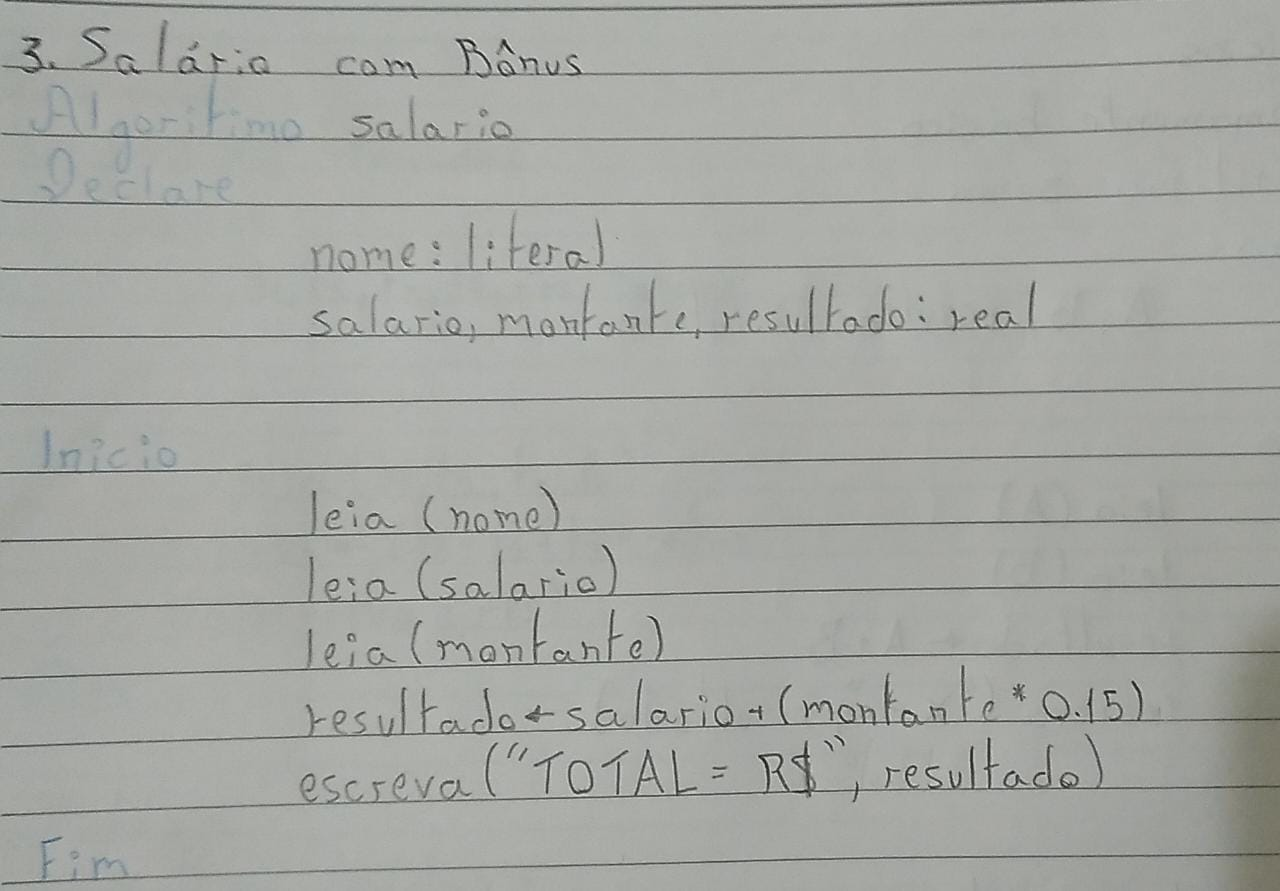 3. Salário com Bônus
Algoritimo salario
Declare
nome: literal
salario, montante, resultado: real
Inicio
leia (nome)
leia (salario)
leia (montante)
resultado ← salario + (montante * 0.15)
escreva ("TOTAL = R$", resultado)
Fim